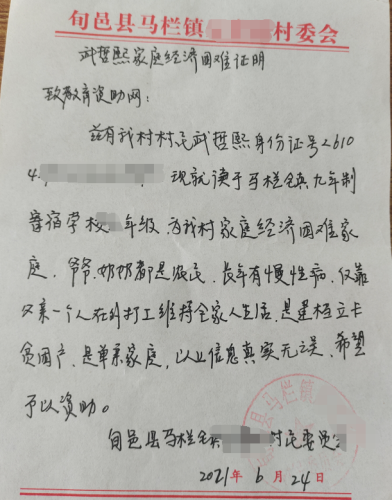 旬邑县马栏镇 村委会
武哲熙家庭经济困难证明
致教育资助网：
兹有我村村民武哲熙身份证号2610
4. 现就读于马栏镇九年制
寄宿学校 年级，为我村家庭经济困难家
庭，爷爷.奶奶都是农民，长年有慢性病，仅靠
父亲一个人在外打工维持全家人生活，是建档立卡
贫困户，是单亲家庭，以上信息真实无误，希望
予以资助。
旬邑县马栏镇 村民委员会
2021年6月24日